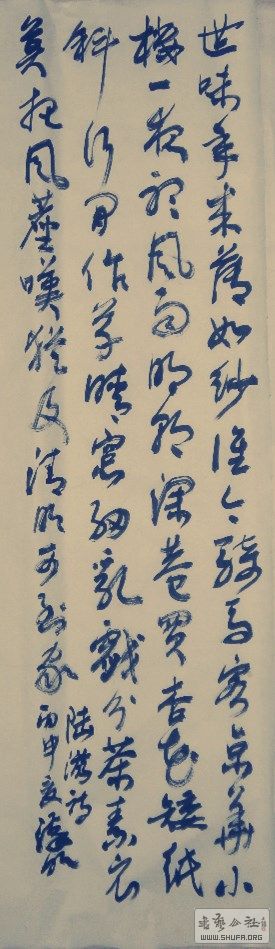 世味年来薄如纱谁令骑马客京華小
樓一夜聴风雨明朝深巷買杏花矮纸
斜行闲作草晴窗细乳戲分茶素衣
莫把风塵嘆猶及清明可到家
陆游诗
丙申夏
书艺公社
WWW.SHUFA.ORG